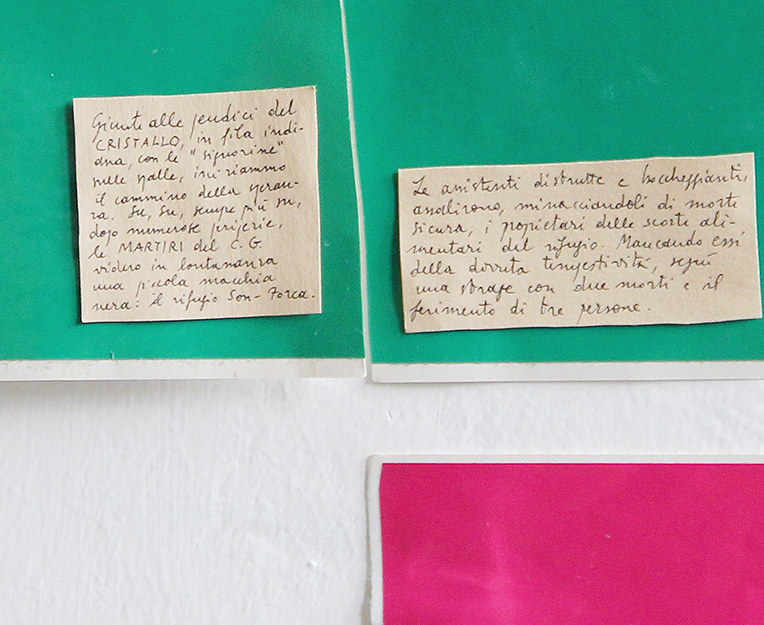 Giunti alle pendici del
CRISTALLO, in fila indi-
ana, con le "signorine"
sulle spalle, iniziammo
il cammino della speran-
za. Su, su, sempre più su,
dopo numerose peripezie,
le MARTIRI del C. G.
videro in lontananza
una piccola macchia
nera: il rifugio Son-Forca.
Le assistenti distrutte e boccheggianti,
assalirono, minacciandoli di morte
sicura, i propietari delle scorte ali-
mentari del rifugio. Mancando essi
della dovuta tempestività, seguì
una strage con due morti e il
ferimento di tre persone.